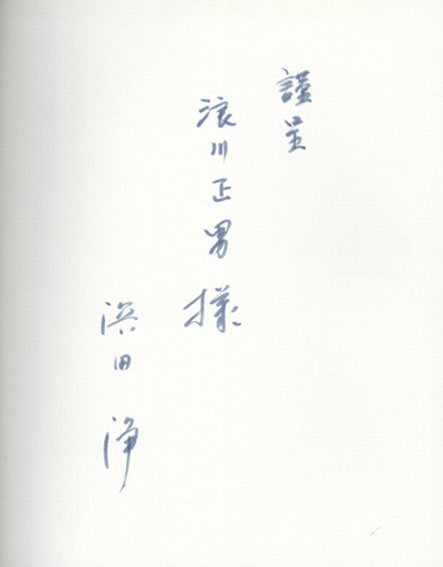 謹呈
浪川正男様
浜田浄